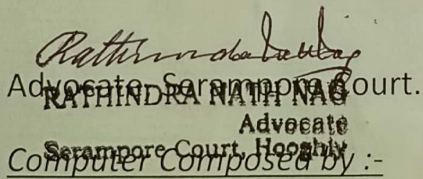 Rathindra Nath Nag
Advocate, Serampore Court.
RATHINDRA NATH NAG
Advocate
Serampore Court, Hooghly
Computer Composed by :-